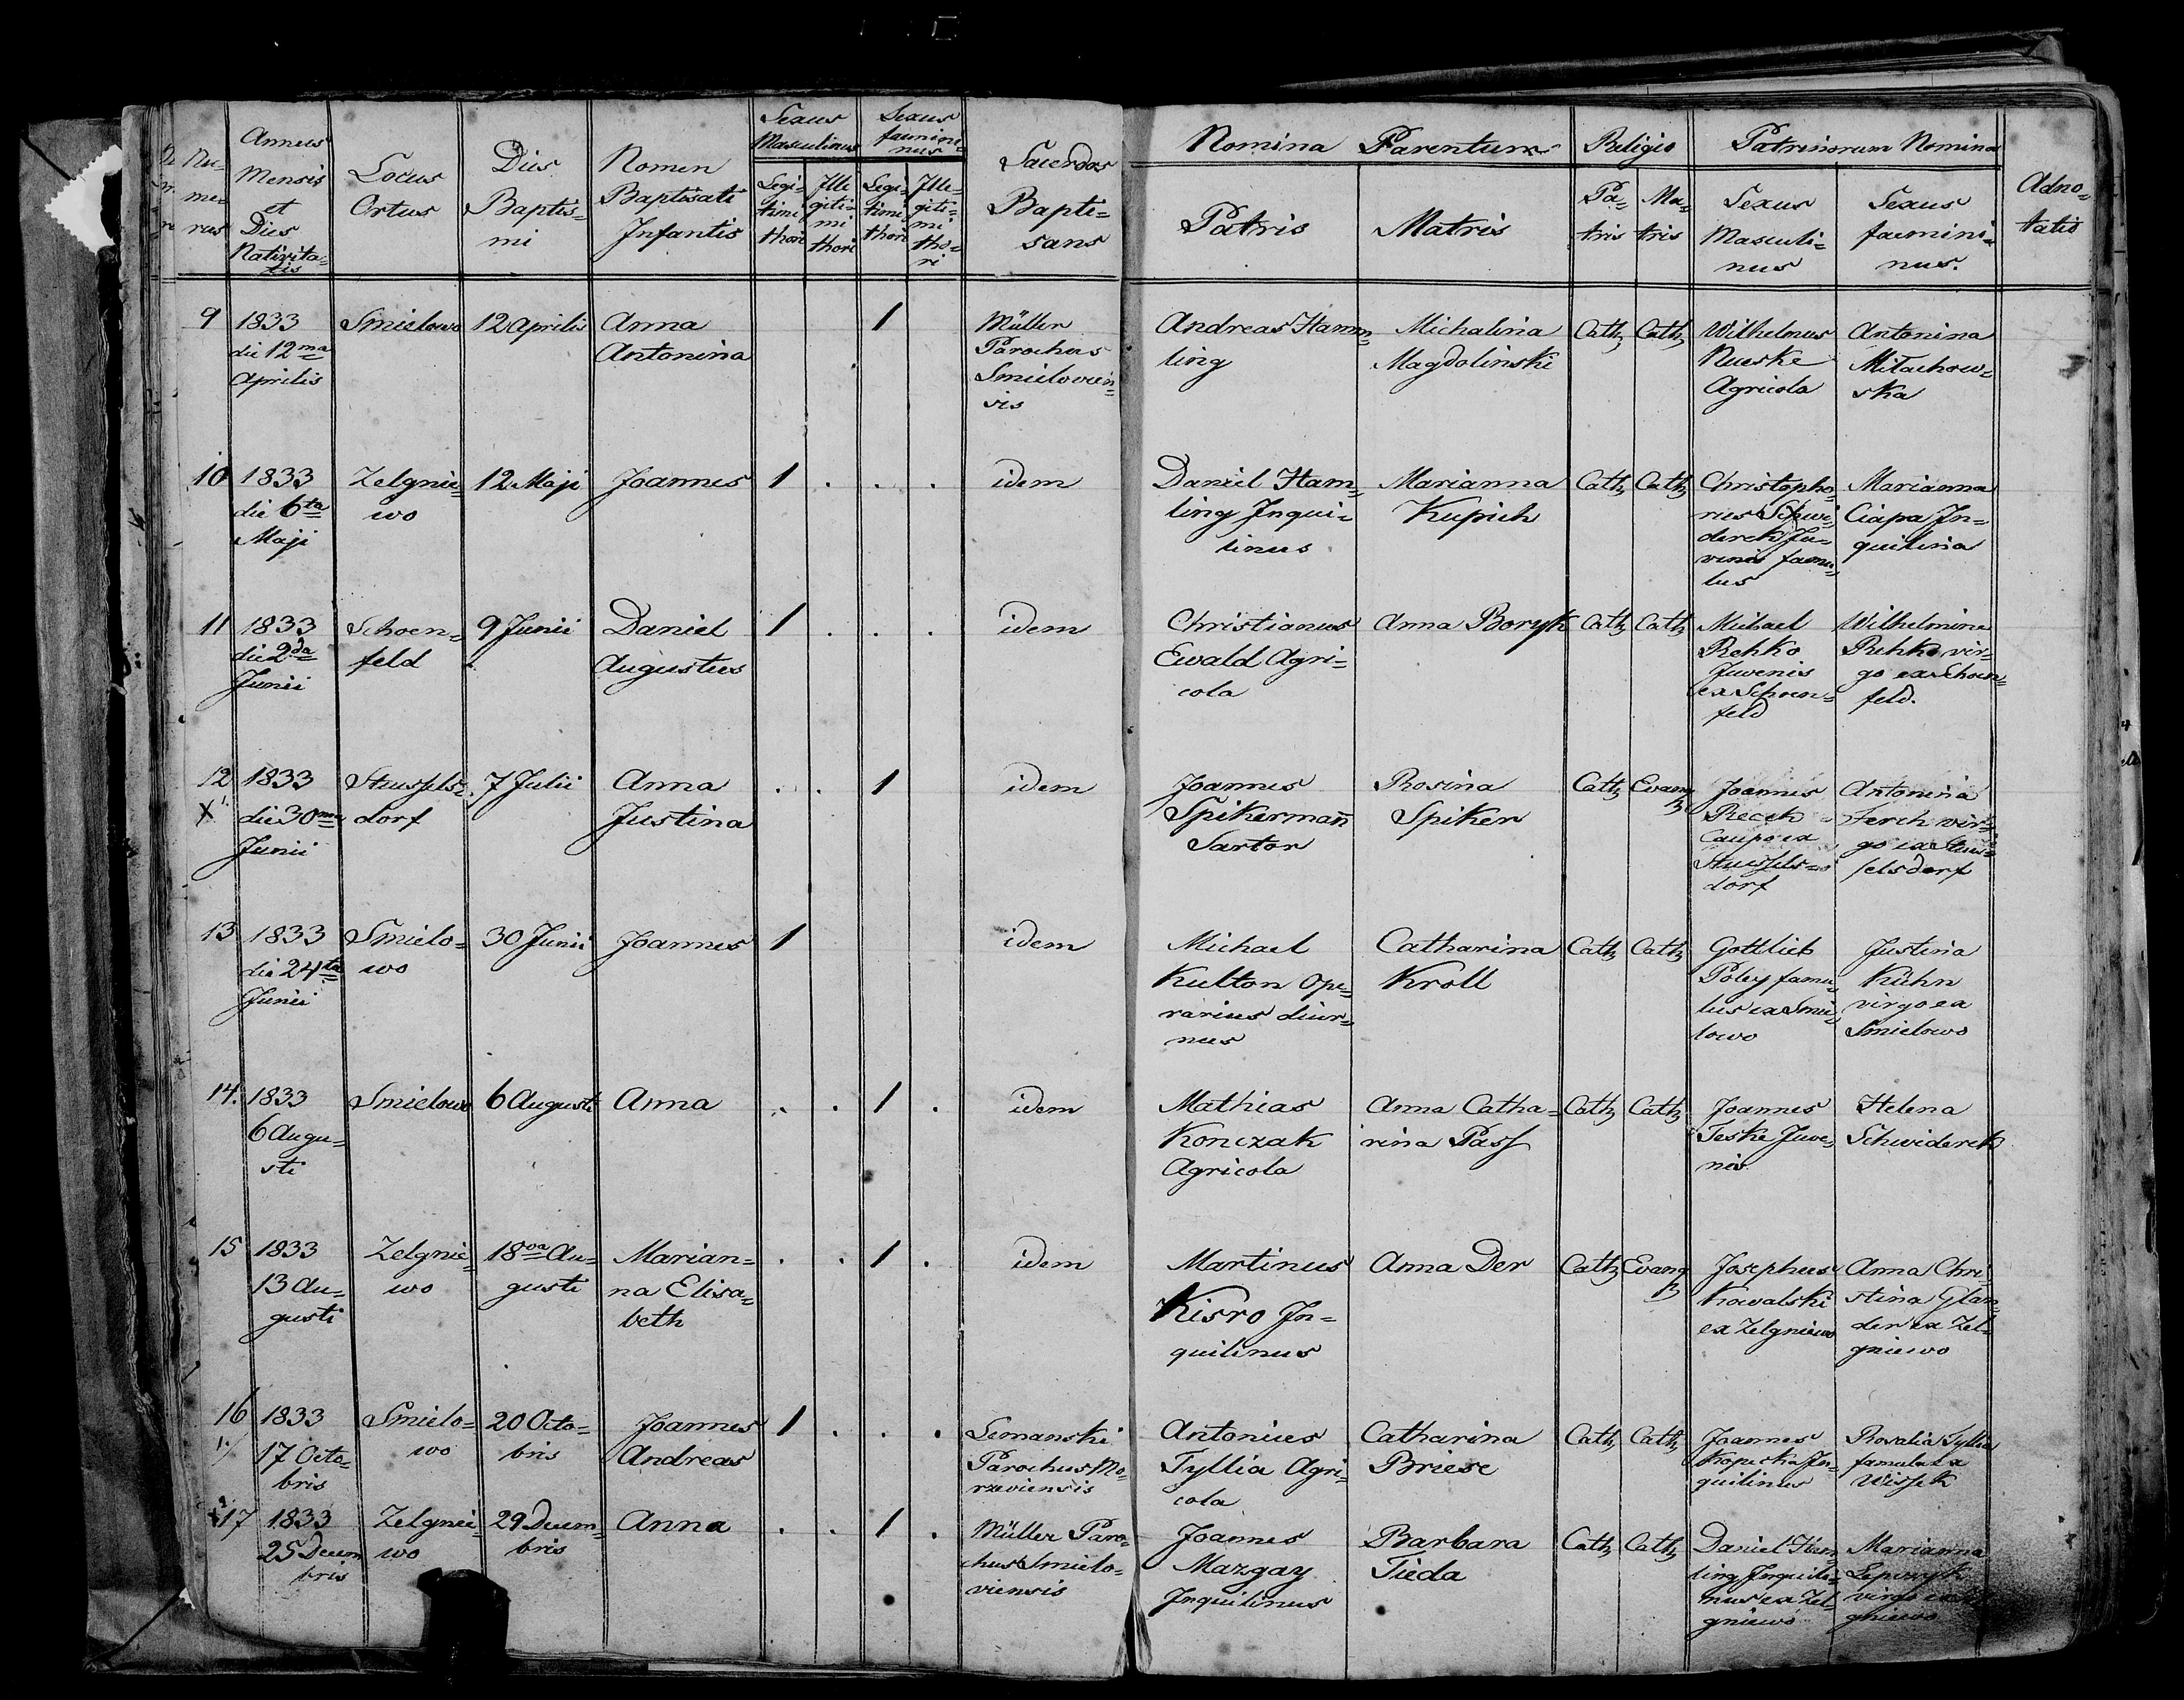 Nu-
me-
rus
Annus
Mensis
et
Dies
Nativita-
tis
Locus
Ortus
Dies
Baptis-
mi
Nomen
Baptisati
Infantis
Sexus
Masculinus
Legi-
timi
thori
Ille
giti-
mi
thori
Sexus
faemini-
nus
Legi-
timi
thori
Ille-
giti-
mi
tho-
ri
Sacerdos
Bapti-
sans
Nomina Parentum
Patris
Matris
Religio
Pa-
tris
Ma-
tris
Patrinorum Nomina
Sexus
Masculi-
nus
Sexus
faemini-
nus.
Adno-
tatio
9
1833
die 12ma
Aprilis
Smielowo
12 Aprilis
Anna
Antonina
1
Müller
Parochus
Smielovien-
sis
Andreas Hamm-
ling
Michalina
Magdolinski
Cath
Cath
Wilhelmus
Nueske
Agricola
Antonina
Mitachow-
ska
10
1833
die 6ta
Maji
Zelgnie-
wo
12 Maji
Joannes
1 . . .
idem
Daniel Ham-
ling Inqui-
linus
Marianna
Kupich
Cath
Cath
Christopho-
rus Schwi-
derek Ju-
venis famu-
lus
Marianna
Ciapa In-
quilina
11
1833
die 2da
Junii
Schoen-
feld
9 Junii
Daniel
Augustus
1 . . .
idem
Christianus
Ewald Agri-
cola
Anna Boryk
Cath
Cath
Michael
Rehko
Juvenis
ex Schoen-
feld
Wilhelmina
Rehko vir-
go ex Schoen-
feld.
12
X
1833
die 30ma
Junii
Stuesfels-
dorf
7 Julii
Anna
Justina
. . 1
idem
Joannes
Spikermañ
Sartor
Rosina
Spiker
Cath
Evang
Joannes
Reech
Caupo ex
Stuesfels-
dorf
Antonina
Ferch vir-
go ex Stues-
felsdorf
13
1833
die 24ta
Junii
Smielo-
wo
30 Junii
Joannes
1
idem
Michael
Kulton Ope-
rarius diur-
nus
Catharina
Kroll
Cath
Cath
Gottlieb
Poley famu-
lus ex Smie-
lowo
Justina
Kühn
virgo ex
Smielowo
14.
1833
6 Augu-
sti
Smielowo
6 Augusti
Anna
. . 1 .
idem
Mathias
Konczak
Agricola
Anna Catha-
rina Pass
Cath
Cath
Joannes
Teske Juve-
nis
Helena
Schwiderek
15
1833
13 Au-
gusti
Zelgnie-
wo
18va Au-
gusti
Marian-
na Elisa-
beth
. . 1 .
idem
Martinus
Kisro In-
quilinus
Anna Der
Cath
Evang
Josephus
Kowalski
ex Zelgniewo
Anna Chri-
stina Glan-
der ex Zel-
gniewo
16
1833
17 Octo-
bris
Smielo-
wo
20 Octo-
bris
Joannes
Andreas
1 . . .
Semanski
Parochus Mo-
rzeviensis
Antonius
Tyllia Agri-
cola
Catharina
Briese
Cath
Cath
Joannes
Kopecka In-
quilinus
Rosalia Tyllia
famula ex
Wissek
17
1833
25 Decem
bris
Zelgnie-
wo
29 Decem-
bris
Anna
. . 1 .
Müller Paro-
chus Smielo-
viensis
Joannes
Mazgay
Inquilinus
Barbara
Tieda
Cath
Cath
Daniel Ham-
ling Inquili-
nus ex Zel-
gniewo
Marianna
virgo ex
gniewo